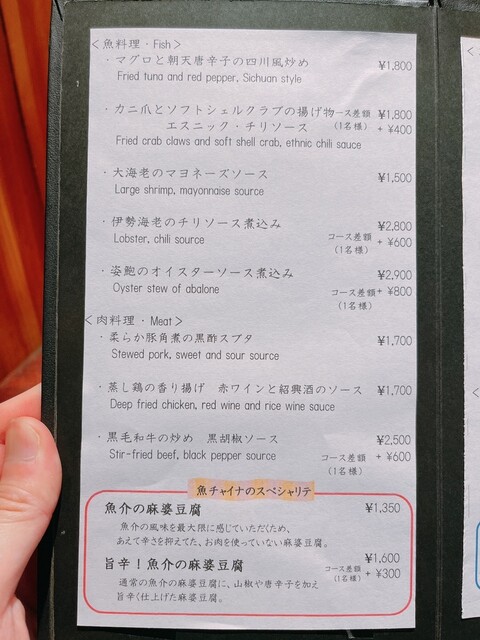 ＜魚料理・Fish＞
・マグロと朝天唐辛子の四川風炒め ¥1,800
Fried tuna and red pepper, Sichuan style
・カニ爪とソフトシェルクラブの揚げ物 コース差額 ¥1,800
エスニック・チリソース (1名様) + ¥400
Fried crab claws and soft shell crab, ethnic chili sauce
・大海老のマヨネーズソース ¥1,500
Large shrimp, mayonnaise source
・伊勢海老のチリソース煮込み ¥2,800
Lobster, chili source コース差額 + ¥600
(1名様)
・姿鮑のオイスターソース煮込み ¥2,900
Oyster stew of abalone コース差額 + ¥800
(1名様)
＜肉料理・Meat＞
・柔らか豚角煮の黒酢スブタ ¥1,700
Stewed pork, sweet and sour source
・蒸し鶏の香り揚げ 赤ワインと紹興酒のソース ¥1,700
Deep fried chicken, red wine and rice wine sauce
・黒毛和牛の炒め 黒胡椒ソース ¥2,500
Stir-fried beef, black pepper source コース差額 + ¥600
(1名様)
魚チャイナのスペシャリテ
魚介の麻婆豆腐 ¥1,350
魚介の風味を最大限に感じていただくため、
あえて辛さを抑えてた、お肉を使っていない麻婆豆腐。
旨辛！魚介の麻婆豆腐 ¥1,600
コース差額 + ¥300
(1名様)
通常の魚介の麻婆豆腐に、山椒や唐辛子を加え
旨辛く仕上げた麻婆豆腐。